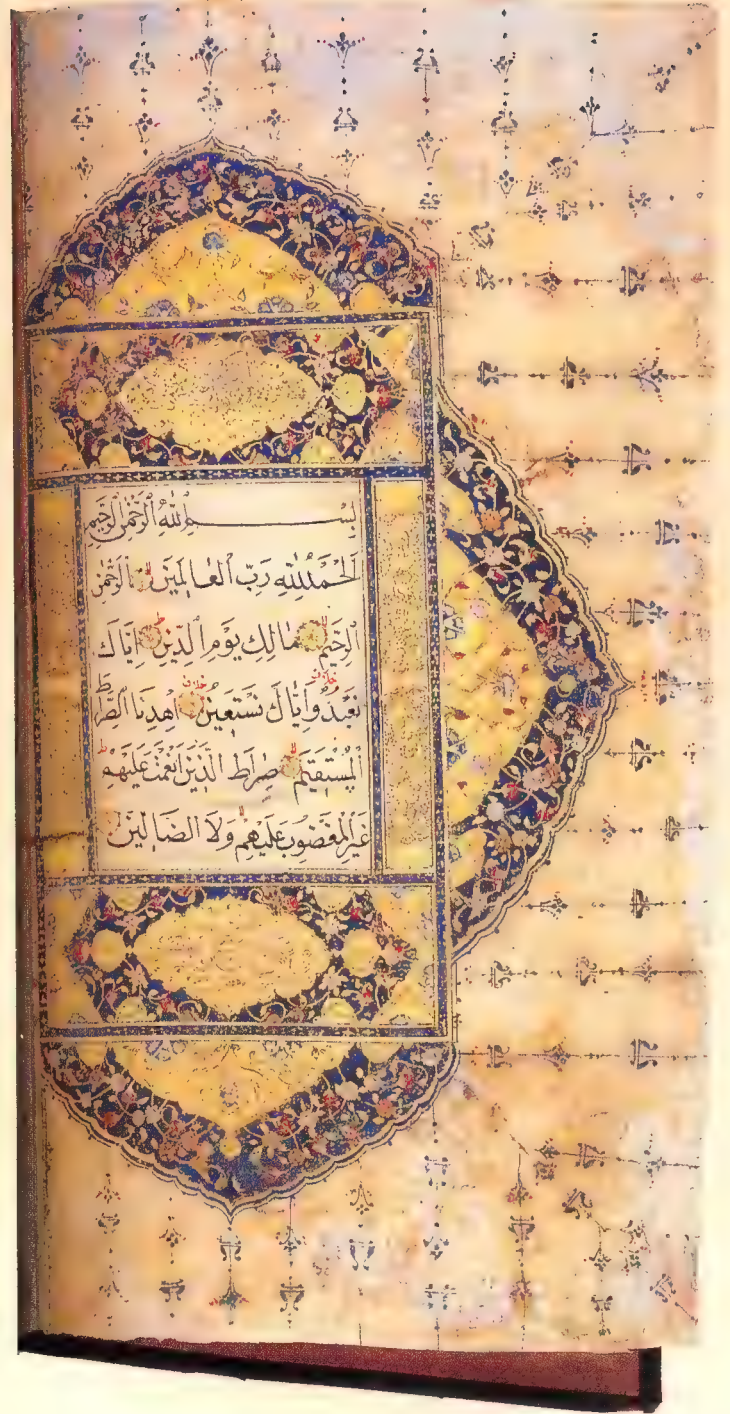 بِسْمِ ٱللَّهِ ٱلرَّحْمَٰنِ ٱلرَّحِيمِ
اَلْحَمْدُ لِلَّهِ رَبِّ ٱلْعَالَمِينَ ٱلرَّحْمٰنِ
ٱلرَّحِيمِ مَالِكِ يَوْمِ ٱلدِّينِ اِيَّاكَ
نَعْبُدُ وَاِيَّاكَ نَسْتَعِينُ اِهْدِنَا ٱلصِّرَاطَ
ٱلْمُسْتَقِيمَ صِرَاطَ ٱلَّذِينَ اَنْعَمْتَ عَلَيْهِمْ
غَيْرِ ٱلْمَغْضُوبِ عَلَيْهِمْ وَلَا ٱلضَّالِّينَ